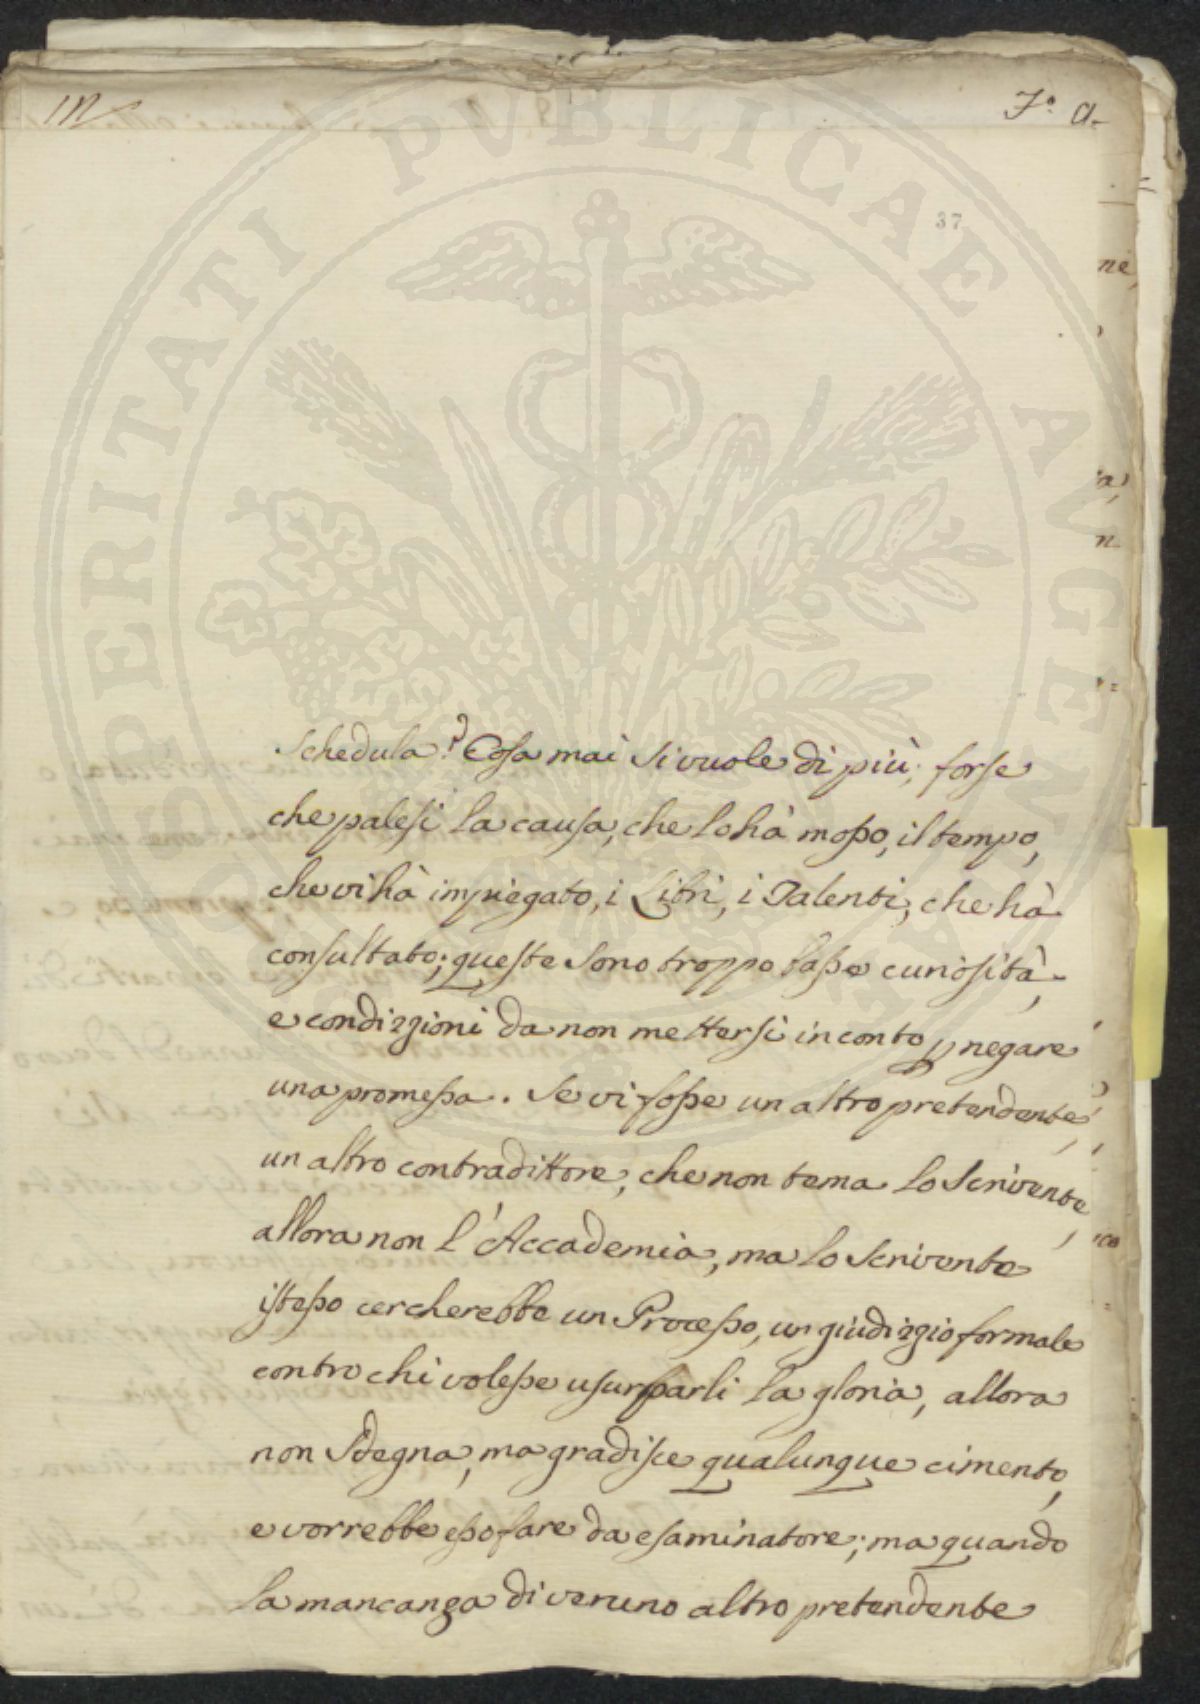 m
F.o a.
37
Schedula? Cosa mai si vuole di più; forse
che palesi la causa, che lo hà mosso, il tempo,
che vi hà impiegato, i Libri, i Talenti, che hà
consultato; queste sono troppo basse curiosità,
e condizzioni da non mettersi in conto p negare
una promessa. Se vi fosse un altro pretendente,
un altro contradittore, che non tema lo Scrivente,
allora non l'Accademia, ma lo Scrivente
istesso cercherebbe un Processo, un giudizzio formale
contro chi volesse usurparli la gloria, allora
non sdegna, ma gradisce qualunque cimento,
e vorrebbe esso fare da esaminatore; ma quando
la mancanza di veruno altro pretendente
PROSPERITATI PUBLICAE AUGENDAE